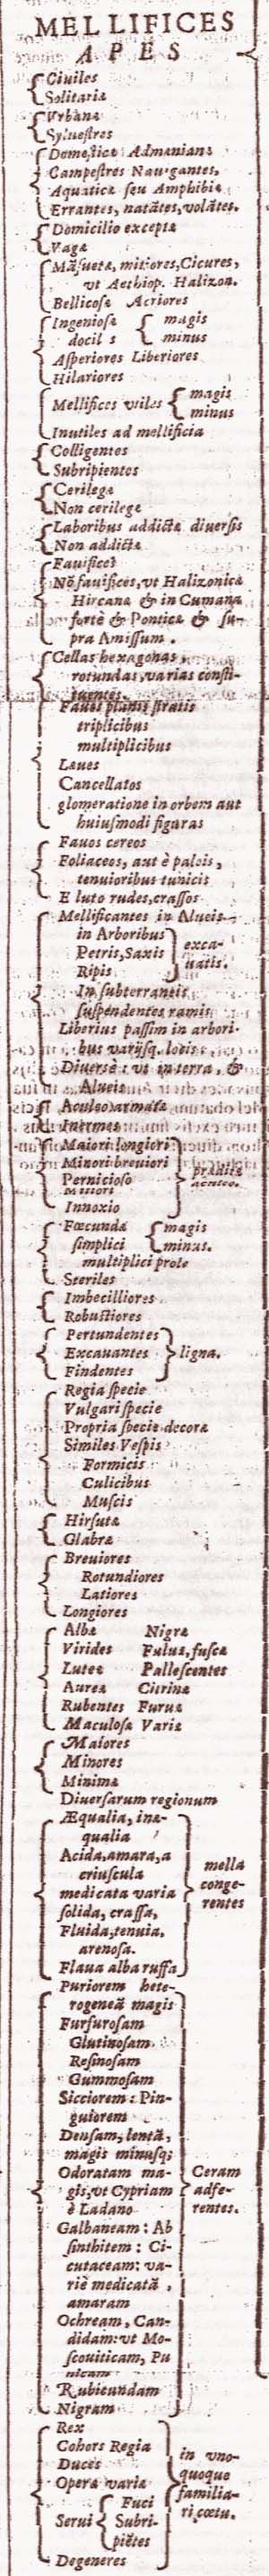 MELLIFICES
APES
Ciuiles
Solitariæ
Vrbanæ
Syluestres
Domesticæ Admanianæ
Campestres Nauigantes,
Aquaticæ seu Amphibiæ
Errantes, natātes, volātes.
Domicilio exceptæ
Vagæ
Māsuetæ, mitiores, Cicures,
vt Aethiop. Halizon.
Bellicosæ Acriores
Ingeniosæ magis
docil s minus
Asperiores Liberiores
Hilariores
Mellifices vtiles magis
minus
Inutiles ad mellificia
Colligentes
Subripientes
Cerilegæ
Non cerilegæ
Laboribus addictæ diuersis
Non addictæ
Fauifices
Nō fauifices, vt Halizonicæ
Hircanæ & in Cumana
fortè & Ponticæ & su-
pra Amissum.
Cellas hexagonas,
rotundas, varias consti-
tuentes.
Fauos planis stratis
triplicibus
multiplicibus
Laues
Cancellatos
glomeratione in orbem aut
huiusmodi figuras
Fauos cereos
Foliaceos, aut è paleis,
tenuioribus tunicis
E luto rudes, crassos
Mellificantes in Alueis
in Arboribus
Petris, Saxis exca-
Ripis uatis.
In subterraneis
suspendentes ramis
Liberius passim in arbori-
bus varijsq. locis:
Diuersæ: vt in terra, &
Alueis
Aculeo armatæ
Inermes
Maiori longiori
Minori breuiori
Pernicioso præditæ
Mitiori aculeo.
Innoxio
Fœcundæ magis
simplici minus.
multiplici prole
Steriles
Imbecilliores
Robustiores
Pertundentes
Excauantes ligna.
Findentes
Regia specie
Vulgari specie
Propria specie decora
Similes Vespis
Formicis
Culicibus
Muscis
Hirsutæ
Glabræ
Breuiores
Rotundiores
Latiores
Longiores
Albæ Nigræ
Virides Fuluæ, fuscæ
Luteæ Pallescentes
Aureæ Citrinæ
Rubentes Furuæ
Maculosæ Variæ
Maiores
Minores
Minimæ
Diuersarum regionum
Æqualia, inæ-
qualia
Acida, amara, a
criuscula mella
medicata varia conge-
solida, crassa, rentes
Fluida, tenuia,
arenosa.
Flaua alba ruffa
Puriorem hete-
rogeneā magis
Furfurosam
Glutinosam
Resinosam
Gummosam
Sicciorem: Pin-
guiorem
Densam, lentā,
magis minusq;
Odoratam ma- Ceram
gis, vt Cypriam adfe-
è Ladano rentes.
Galbaneam: Ab
sinthitem: Ci-
cutaceam: va-
riè medicatā,
amaram
Ochream, Can-
didam: vt Mo-
scouiticam, Pu
nicam
Rubicundam
Nigram
Rex
Cohors Regia in vno-
Duces quoque
Operæ variæ familia-
Fuci ri cœtu.
Serui Subri-
piētes
Degeneres